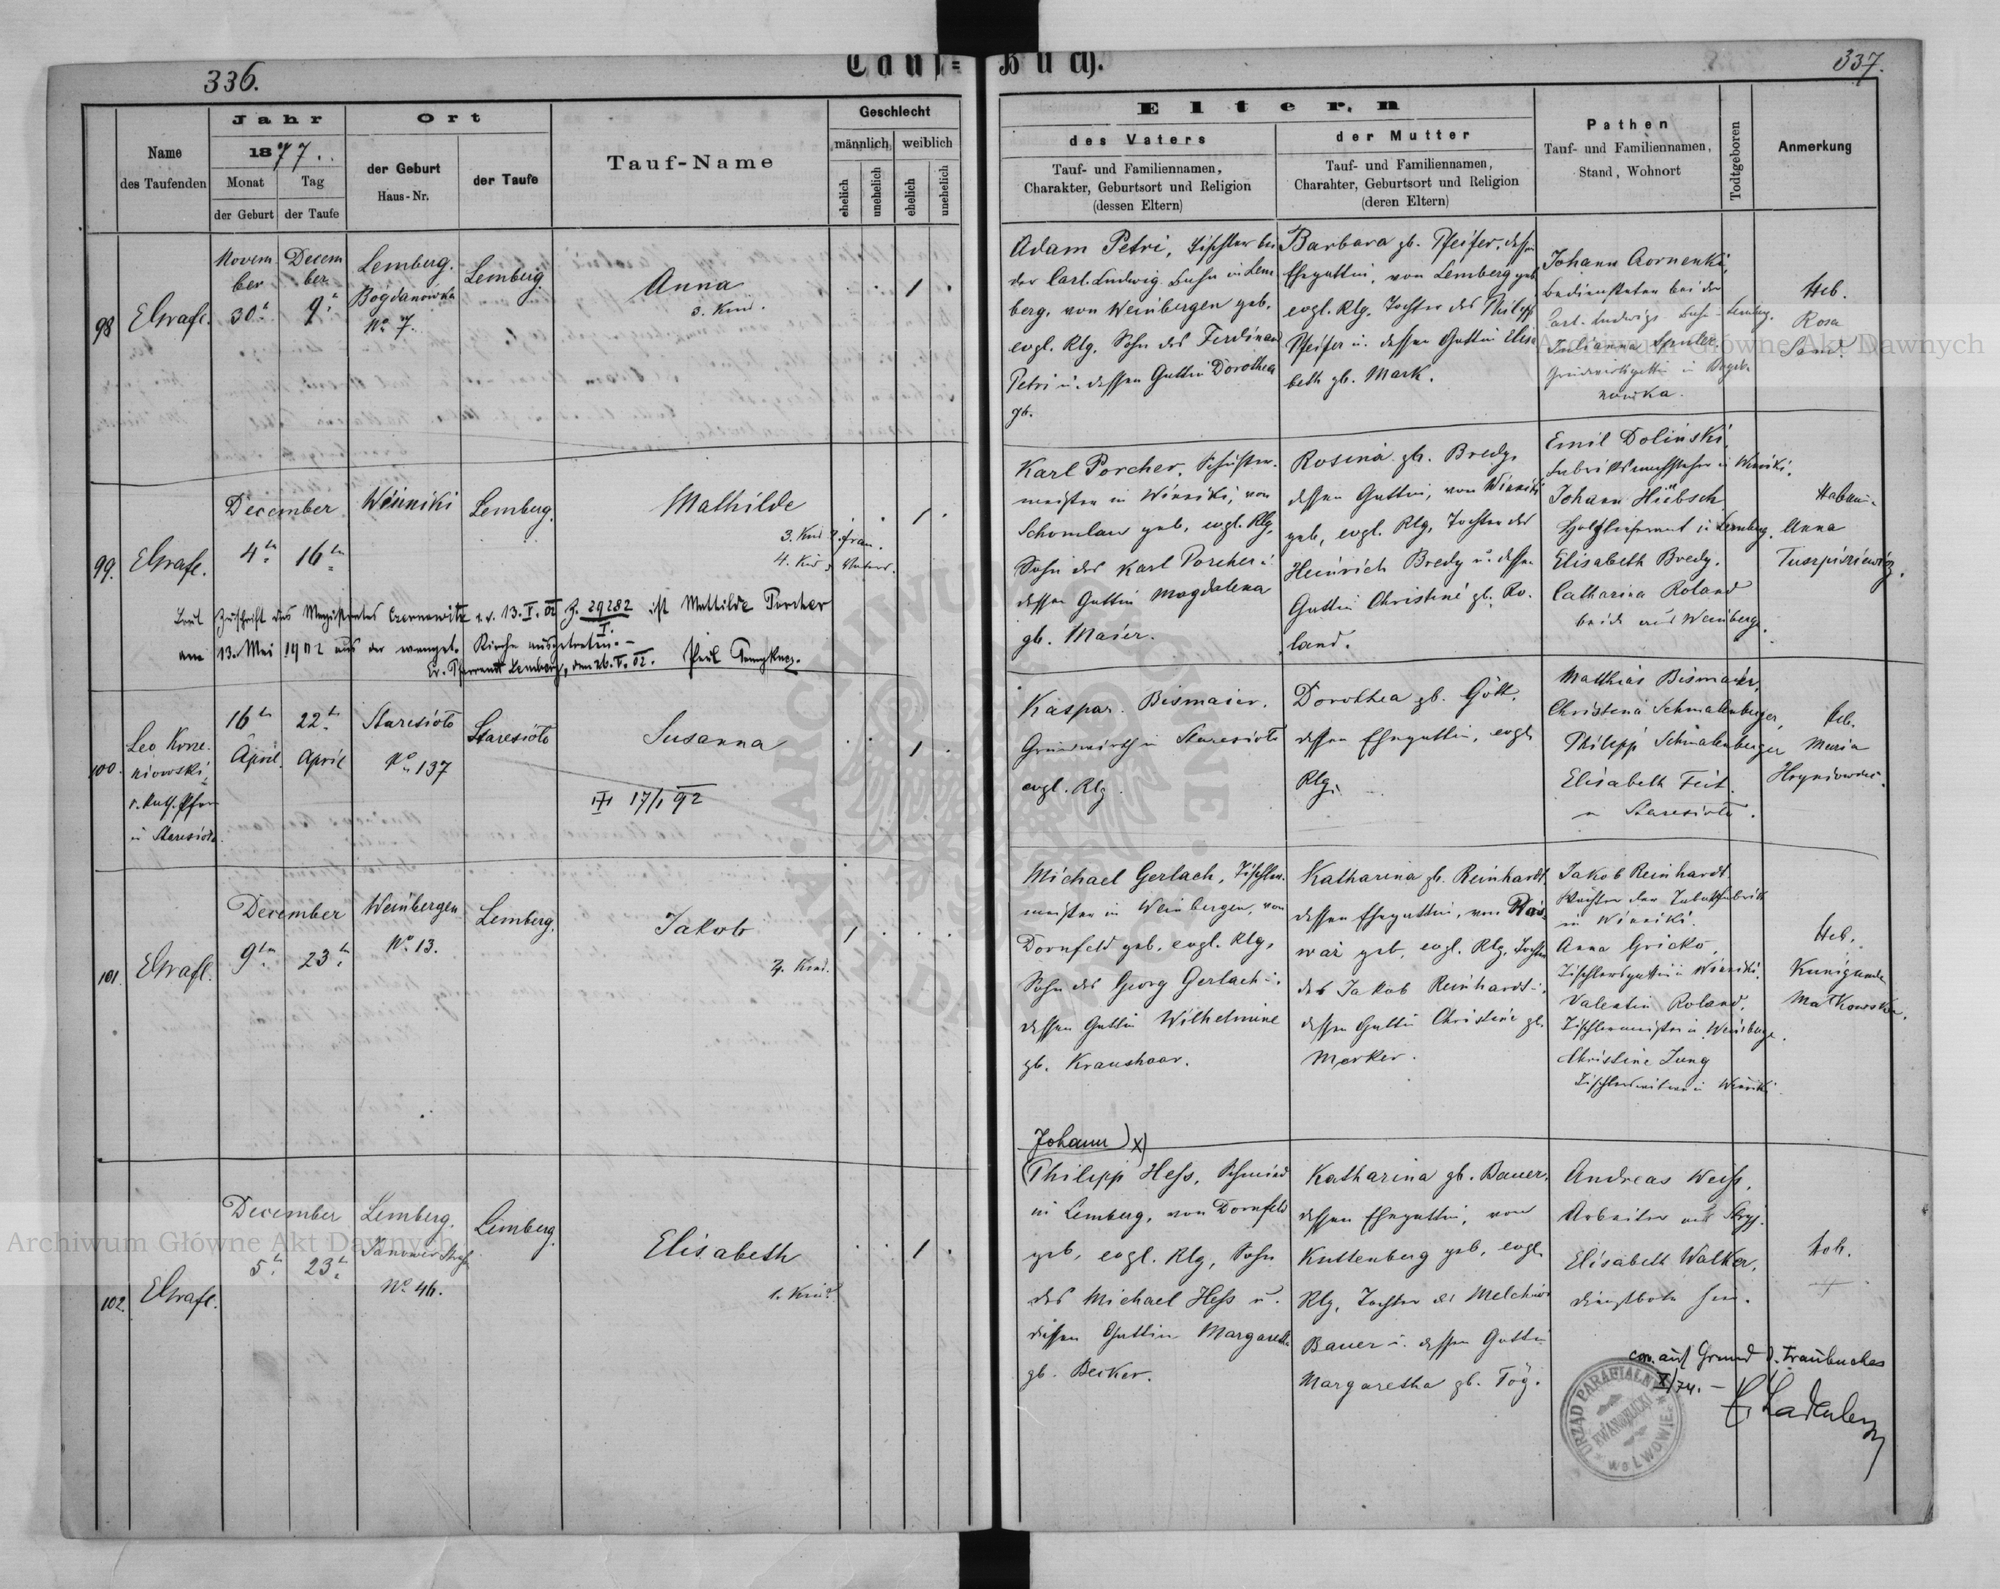 336.
Tauf=
Buch.
337.
Name
des Taufenden
Jahr
1877.
Monat
Tag
der Geburt
der Taufe
Ort
der Geburt
Haus-Nr.
der Taufe
Tauf-Name
Geschlecht
männlich
weiblich
ehelich
unehelich
ehelich
unehelich
Eltern
des Vaters
Tauf- und Familiennamen,
Charakter, Geburtsort und Religion
(dessen Eltern)
der Mutter
Tauf- und Familiennamen,
Charahter, Geburtsort und Religion
(deren Eltern)
Pathen
Tauf- und Familiennamen,
Stand, Wohnort
Todtgeboren
Anmerkung
98
Novem
ber
30
Decem
ber
9
Lemberg.
Bogdanowka
No 7.
Lemberg
Anna
3. Kind.
Adam Petri, Tischler bei
der Carl. Ludwig. Bahn in Lem
berg, von Weinbergen geb.
evgl. Rlg. Sohn des Ferdinand
Petri u. dessen Gattin Dorothea
gb.
Barbara gb. Pfeifer, dessen
Ehegattin, von Lemberg geb
evgl. Rlg. Tochter des Philipp
Pfeifer u. dessen Gattin Elisa
beth gb. Mark.
Johann
Bediensteter bei der
Carl. Ludwigs Bahn Lemberg.
Julianna
nowka.
Heb.
Rosa
99.
December
4tn
16tn
Winniki
Lemberg.
Mathilde
3. Kind
4. Kind
Karl Porcher, Schuster-
meister in Winniki, von
Schomlau geb, evgl. Rlg,
Sohn des Karl Porcher u.
dessen Gattin Magdalena
gb. Maier.
Rosina gb. Bredy,
dessen Gattin, von Winniki
geb, evgl. Rlg, Tochter des
Heinrich Bredy u. dessen
Gattin Christine gb. Ro.
land.
Emil Dolinski,
Johann Hübsch
Holzlieferant in Lemberg.
Elisabeth Bredy.
Catharina Roland
beide aus Weinberge.
Anna
Laut Zuschrift des Magistrates Czernowitz v. 13. V. 02 Z. 29282 ist Mathilde Porcher
am 13. Mai 1902 aus der evangel. Kirche ausgetreten. -
Ev. Pfarramt Lemberg, den 26. V. 02.
100.
Leo Korze-
niowski,
r. kath. Pfarr
in Staresioło
16tn
April.
22tn
April
Staresioło
No 137
Staresioło
Susanna
17/1 92
Kaspar Bismaier,
Grundwirth in Staresioło
evgl. Rlg.
Dorothea gb. Gött.
dessen Ehegattin, evgl
Rlg.
Matthias Bismaier,
Christina Schmalenberger,
Philipp Schmalenberger
Elisabeth Feit.
Staresioło.
Heb.
Maria
101.
December
9tn
23tn
Weinbergen
No 13.
Lemberg.
Jakob
Kind.
Michael Gerlach, Tischler-
meister in Weinbergen, von
Dornfeld geb. evgl. Rlg,
Sohn des Georg Gerlach u.
dessen Gattin Wilhelmine
gb. Kraushaar.
Katharina gb. Reinhardt,
dessen Ehegattin, von
geb, evgl. Rlg, Tochter
des Jakob Reinhardt u.
dessen Gattin Christine gb.
Merker.
Jakob Reinhardt
Wächter der Tabakfabrik
in Winniki.
Anna Gricko,
Tischlersgattin in Winniki.
Valentin Roland,
Tischlermeister in Weinberge.
Christine Jung
Tischlerswitwe in Winniki
Heb.
Kunigunde
Matkowska.
102.
December
5
23
Lemberg.
Janower Straße
No 46.
Lemberg.
Elisabeth
1. Kind
Johann) x)
(Philipp Heß, Schmied
in Lemberg, von Dornfeld
geb, evgl. Rlg, Sohn
des Michael Heß u.
dessen Gattin Margaretha
gb. Becker.
Katharina gb. Bauer,
dessen Ehegattin, von
Kuttenberg geb, evgl
Rlg, Tochter des Melchior
Bauer u. dessen Gattin
Margaretha gb.
Andreas Weiß,
Arbeiter aus Stryj.
Elisabeth Walker,
Dienstbote hier.
corr. auf Grund d. Traubuches
X/74. -
URZĄD PARAFIALNY
EWANGELICKI
WE LWOWIE
Archiwum Główne Akt Dawnych
Archiwum Główne Akt Dawnych